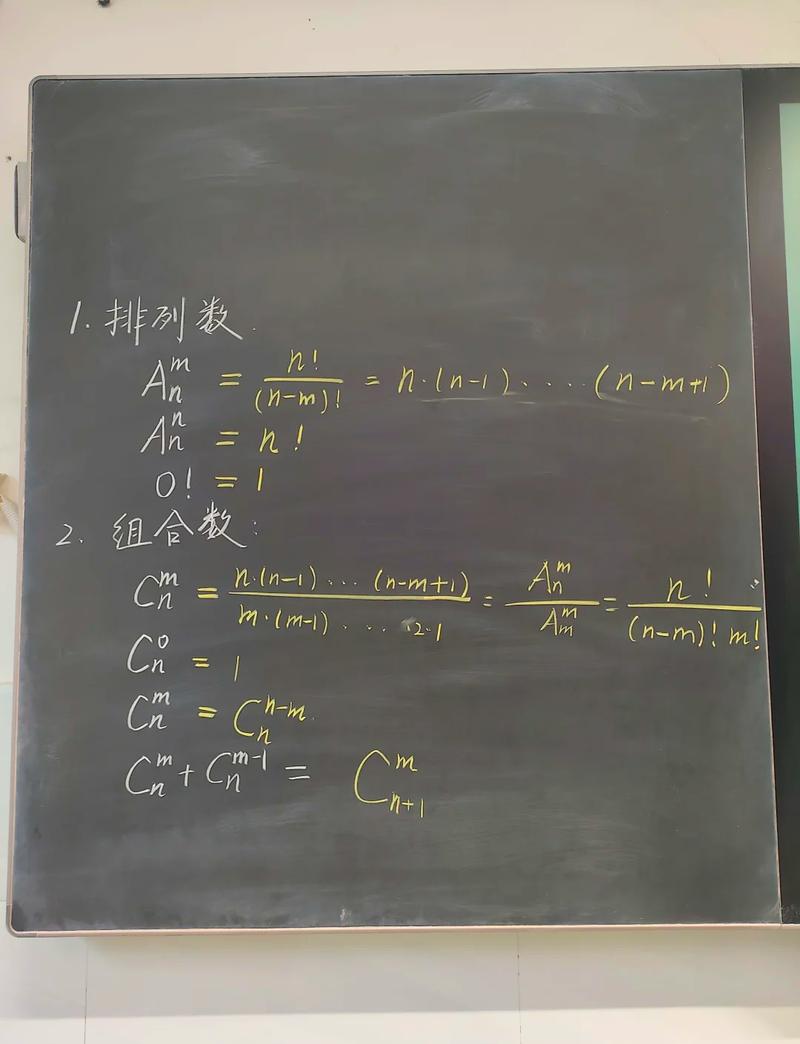 1. 排列数.
A_n^m = \frac{n!}{(n-m)!} = n·(n-1)·...·(n-m+1)
A_n^n = n!
0! = 1
2. 组合数:
C_n^m = \frac{n·(n-1)···(n-m+1)}{m·(m-1)·...·2·1} = \frac{A_n^m}{A_m^m} = \frac{n!}{(n-m)! m!}
C_n^0 = 1
C_n^m = C_n^{n-m}.
C_n^m + C_n^{m-1} = C_{n+1}^m